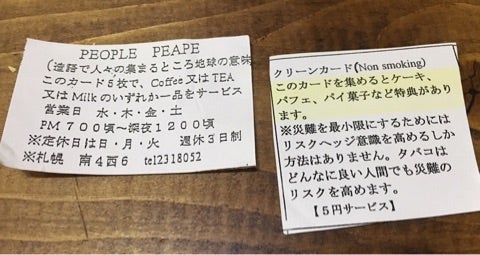 PEOPLE PEAPE
(造語で人々の集まるところ地球の意味
このカード5枚で、Coffee又はTEA
又はMilkのいずれか一品をサービス
営業日 水・木・金・土
PM700頃~深夜1200頃
※定休日は日・月・火 週休3日制
※札幌 南4西6 tel2318052
クリーンカード(Non smoking)
このカードを集めるとケーキ、
パフェ、パイ菓子など特典があり
ます。
※災難を最小限にするためには
リスクヘッジ意識を高めるしか
方法はありません。タバコは
どんなに良い人間でも災難の
リスクを高めます。
【5円サービス】